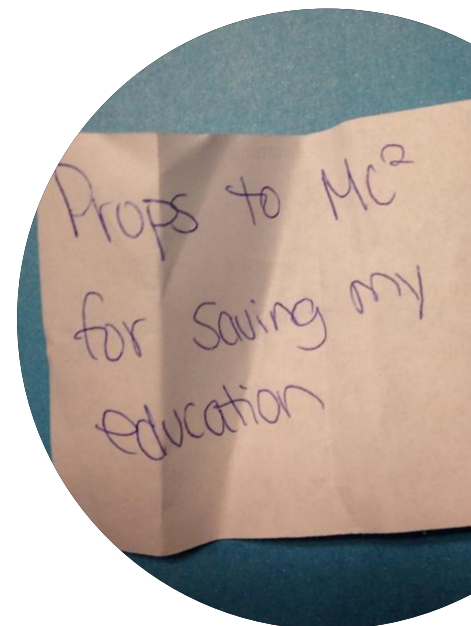 Props to MC²
for saving my
education